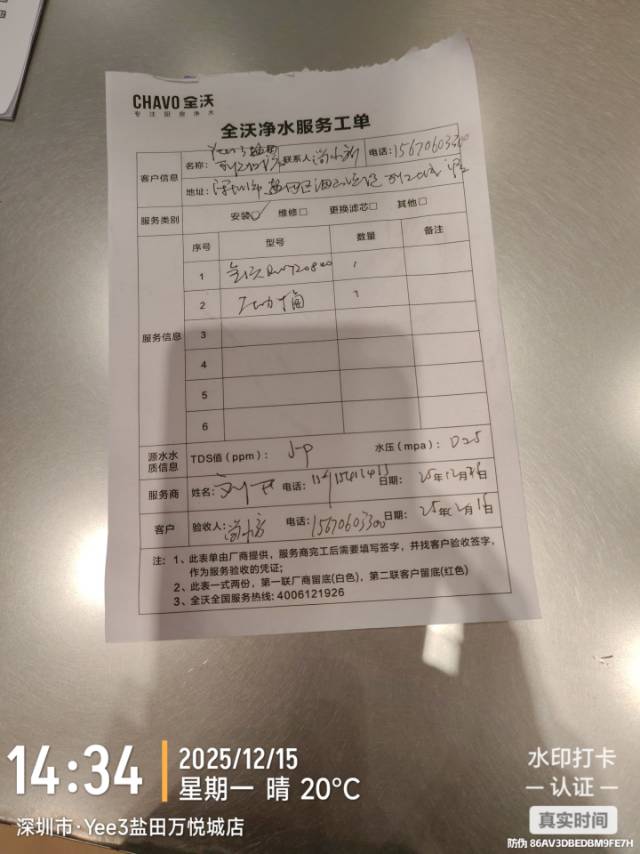 CHAVO 全沃
专注厨房净水
全沃净水服务工单
客户信息 名称: Yee3盐田 联系人 电话: 15670603300
地址: 深圳市盐田区
服务类别 安装☑ 维修□ 更换滤芯□ 其他□
服务信息 序号 型号 数量 备注
1 全沃 1
2 压力桶 1
3
4
5
6
源水水质信息 TDS值(ppm): 水压(mpa):
服务商 姓名: 电话: 日期: 25年12月
客户 验收人: 电话: 15670603300 日期: 25年12月15日
注: 1、此表单由厂商提供，服务商完工后需要填写签字，并找客户验收签字，
作为服务验收的凭证;
2、此表一式两份，第一联厂商留底(白色)，第二联客户留底(红色)
3、全沃全国服务热线: 4006121926
14:34 2025/12/15
星期一 晴 20°C
深圳市·Yee3盐田万悦城店
水印打卡
认证
真实时间
防伪 86AV3DBEDBM9FE7H